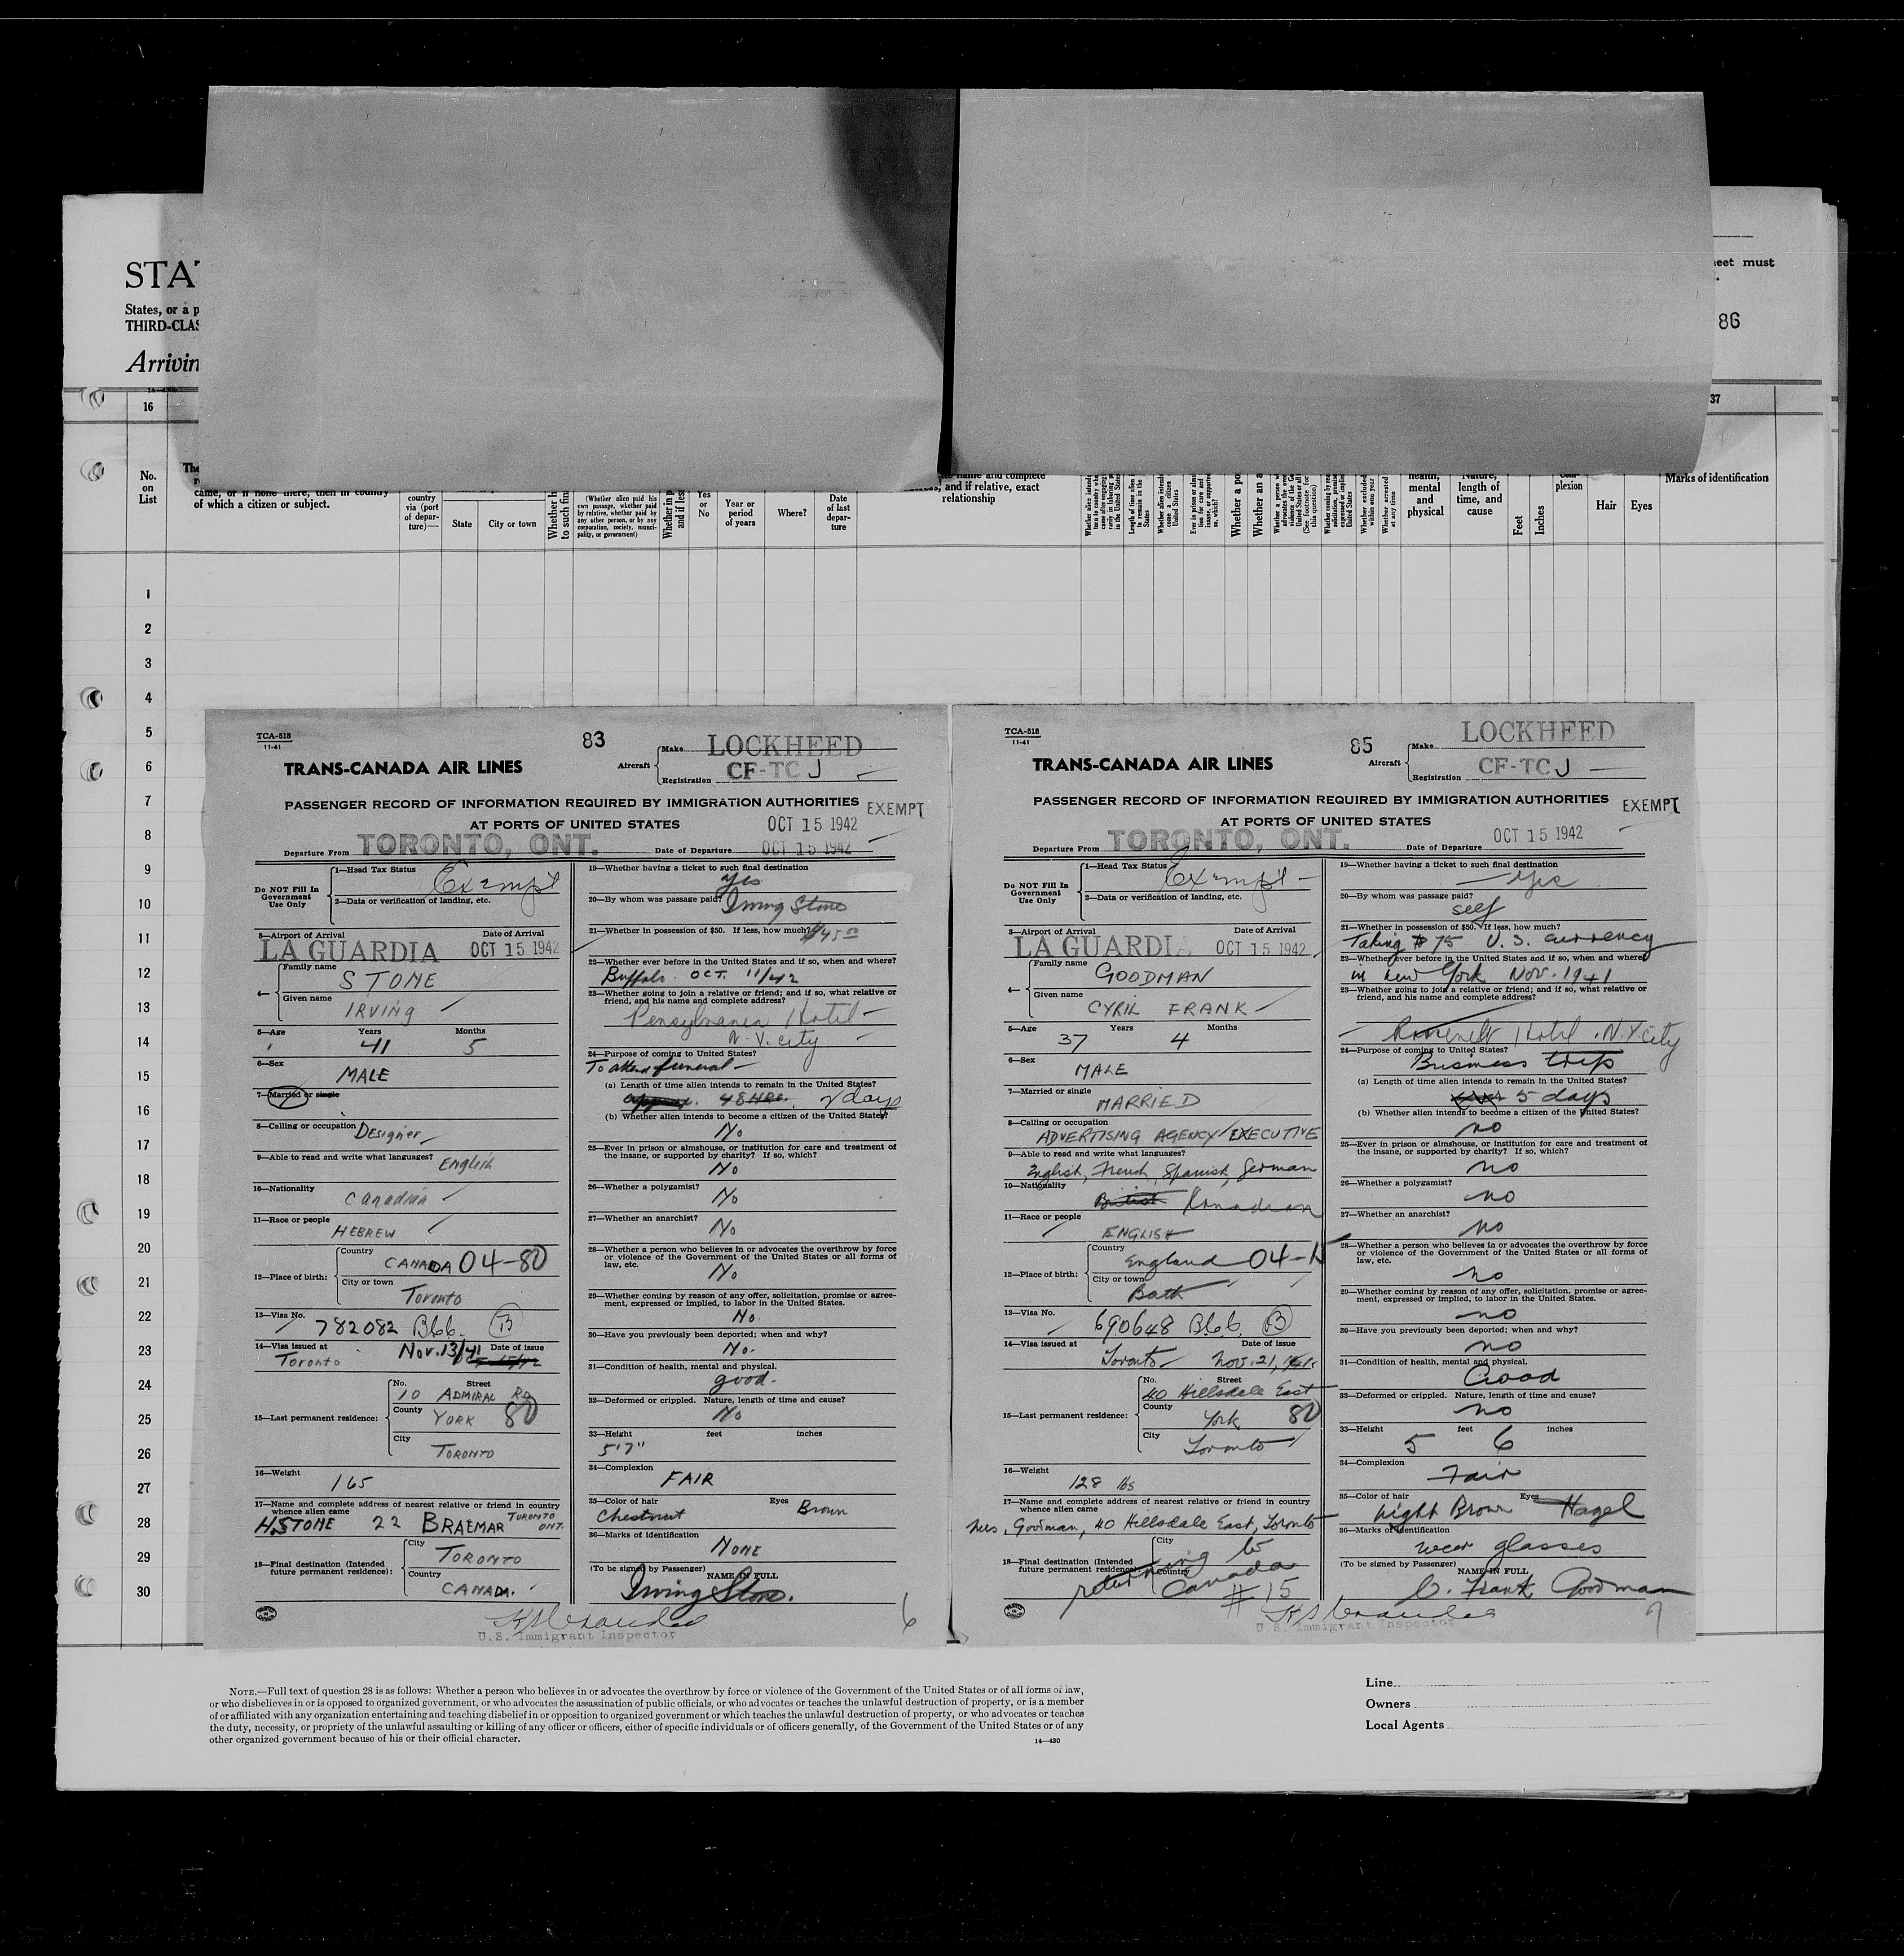 STAT
States, or a p
THIRD-CLAS
Arrivin
eet must
86
16
37
No.
on
List
The
came, or if none there, then in country
of which a citizen or subject.
country
via (port
of depar-
ture)—
State
City or town
Whether h
to such fin
(Whether alien paid his
own passage, whether paid
by relative, whether paid by
any other person, or by any
corporation, society, munici-
pality, or government)
Whether in p
and if less
Yes
or
No
Year or
period
of years
Where?
Date
of last
depar-
ture
name and complete
and if relative, exact
relationship
Whether a po
Whether an a
health,
mental
and
physical
Nature,
length of
time, and
cause
Feet
Inches
Com-
plexion
Hair
Eyes
Marks of identification
1
2
3
4
5
6
7
8
9
10
11
12
13
14
15
16
17
18
19
20
21
22
23
24
25
26
27
28
29
30
TCA-518
11-41
83
TRANS-CANADA AIR LINES
Aircraft
Make LOCKHEED
Registration CF-TC J
PASSENGER RECORD OF INFORMATION REQUIRED BY IMMIGRATION AUTHORITIES
EXEMPT
AT PORTS OF UNITED STATES
OCT 15 1942
Departure From TORONTO, ONT. Date of Departure OCT 15 1942
Do NOT Fill In
Government
Use Only
1—Head Tax Status Exempt
2—Data or verification of landing, etc.
3—Airport of Arrival Date of Arrival
LA GUARDIA OCT 15 1942
4— Family name
STONE
Given name
IRVING
5—Age Years Months
41 5
6—Sex
MALE
7—Married or single
8—Calling or occupation Designer
9—Able to read and write what languages? English
10—Nationality
Canadian
11—Race or people
HEBREW
12—Place of birth:
Country
CANADA 04-80
City or town
Toronto
13—Visa No.
782082 Bbb. B
14—Visa issued at Date of issue
Toronto Nov. 13/41
15—Last permanent residence:
No. Street
10 ADMIRAL Rd
County
YORK 80
City
TORONTO
16—Weight
165
17—Name and complete address of nearest relative or friend in country
whence alien came
H. STONE 22 BRAEMAR TORONTO ONT.
18—Final destination (Intended
future permanent residence):
City
TORONTO
Country
CANADA.
19—Whether having a ticket to such final destination
yes
20—By whom was passage paid? Irving Stone
21—Whether in possession of $50. If less, how much? $45.00
22—Whether ever before in the United States and if so, when and where?
Buffalo OCT. 11/42
23—Whether going to join a relative or friend; and if so, what relative or
friend, and his name and complete address?
Pensylvania Hotel
N.Y. city
24—Purpose of coming to United States?
To attend funeral
(a) Length of time alien intends to remain in the United States?
approx. 48 HRS. 2 days
(b) Whether alien intends to become a citizen of the United States?
No
25—Ever in prison or almshouse, or institution for care and treatment of
the insane, or supported by charity? If so, which?
No
26—Whether a polygamist?
No
27—Whether an anarchist?
No
28—Whether a person who believes in or advocates the overthrow by force
or violence of the Government of the United States or all forms of
law, etc.
No
29—Whether coming by reason of any offer, solicitation, promise or agree-
ment, expressed or implied, to labor in the United States.
No.
30—Have you previously been deported; when and why?
No.
31—Condition of health, mental and physical.
good.
32—Deformed or crippled. Nature, length of time and cause?
No
33—Height feet inches
5'7"
34—Complexion
FAIR
35—Color of hair Eyes
Chestnut Brown
36—Marks of identification
NONE
(To be signed by Passenger)
NAME IN FULL
Irving Stone.
U.S. Immigrant Inspector
6
TCA-518
11-41
85
TRANS-CANADA AIR LINES
Aircraft
Make LOCKHEED
Registration CF-TC J
PASSENGER RECORD OF INFORMATION REQUIRED BY IMMIGRATION AUTHORITIES
EXEMPT
AT PORTS OF UNITED STATES
OCT 15 1942
Departure From TORONTO, ONT. Date of Departure
Do NOT Fill In
Government
Use Only
1—Head Tax Status Exempt
2—Data or verification of landing, etc.
3—Airport of Arrival Date of Arrival
LA GUARDIA OCT 15 1942
4— Family name
GOODMAN
Given name
CYRIL FRANK
5—Age Years Months
37 4
6—Sex
MALE
7—Married or single
MARRIED
8—Calling or occupation
ADVERTISING AGENCY EXECUTIVE
9—Able to read and write what languages?
English, French, Spanish, German
10—Nationality
British Canadian
11—Race or people
ENGLISH
12—Place of birth:
Country
England 04-15
City or town
Bath
13—Visa No.
690648 Bbb. B
14—Visa issued at Date of issue
Toronto Nov. 21, 1941
15—Last permanent residence:
No. Street
40 Hillsdale East
County
York 80
City
Toronto
16—Weight
128 lbs
17—Name and complete address of nearest relative or friend in country
whence alien came
Mrs, Goodman, 40 Hillsdale East, Toronto
18—Final destination (Intended
future permanent residence):
City
Country
returning to
Canada
# 15
19—Whether having a ticket to such final destination
Yes
20—By whom was passage paid?
self
21—Whether in possession of $50. If less, how much?
Taking $75 U.S. currency
22—Whether ever before in the United States and if so, when and where?
in New York Nov. 1941
23—Whether going to join a relative or friend; and if so, what relative or
friend, and his name and complete address?
Roosevelt Hotel . N.Y. City
24—Purpose of coming to United States?
Business trip
(a) Length of time alien intends to remain in the United States?
5 days
(b) Whether alien intends to become a citizen of the United States?
no
25—Ever in prison or almshouse, or institution for care and treatment of
the insane, or supported by charity? If so, which?
no
26—Whether a polygamist?
no
27—Whether an anarchist?
no
28—Whether a person who believes in or advocates the overthrow by force
or violence of the Government of the United States or all forms of
law, etc.
no
29—Whether coming by reason of any offer, solicitation, promise or agree-
ment, expressed or implied, to labor in the United States.
no
30—Have you previously been deported; when and why?
no
31—Condition of health, mental and physical.
Good
32—Deformed or crippled. Nature, length of time and cause?
no
33—Height feet inches
5 6
34—Complexion
Fair
35—Color of hair Eyes
Light Brown Hazel
36—Marks of identification
wear glasses
(To be signed by Passenger)
NAME IN FULL
C. Frank Goodman
U.S. Immigrant Inspector
7
NOTE.—Full text of question 28 is as follows: Whether a person who believes in or advocates the overthrow by force or violence of the Government of the United States or of all forms of law,
or who disbelieves in or is opposed to organized government, or who advocates the assassination of public officials, or who advocates or teaches the unlawful destruction of property, or is a member
of or affiliated with any organization entertaining and teaching disbelief in or opposition to organized government or which teaches the unlawful destruction of property, or who advocates or teaches
the duty, necessity, or propriety of the unlawful assaulting or killing of any officer or officers, either of specific individuals or of officers generally, of the Government of the United States or of any
other organized government because of his or their official character.
14—430
Line
Owners
Local Agents